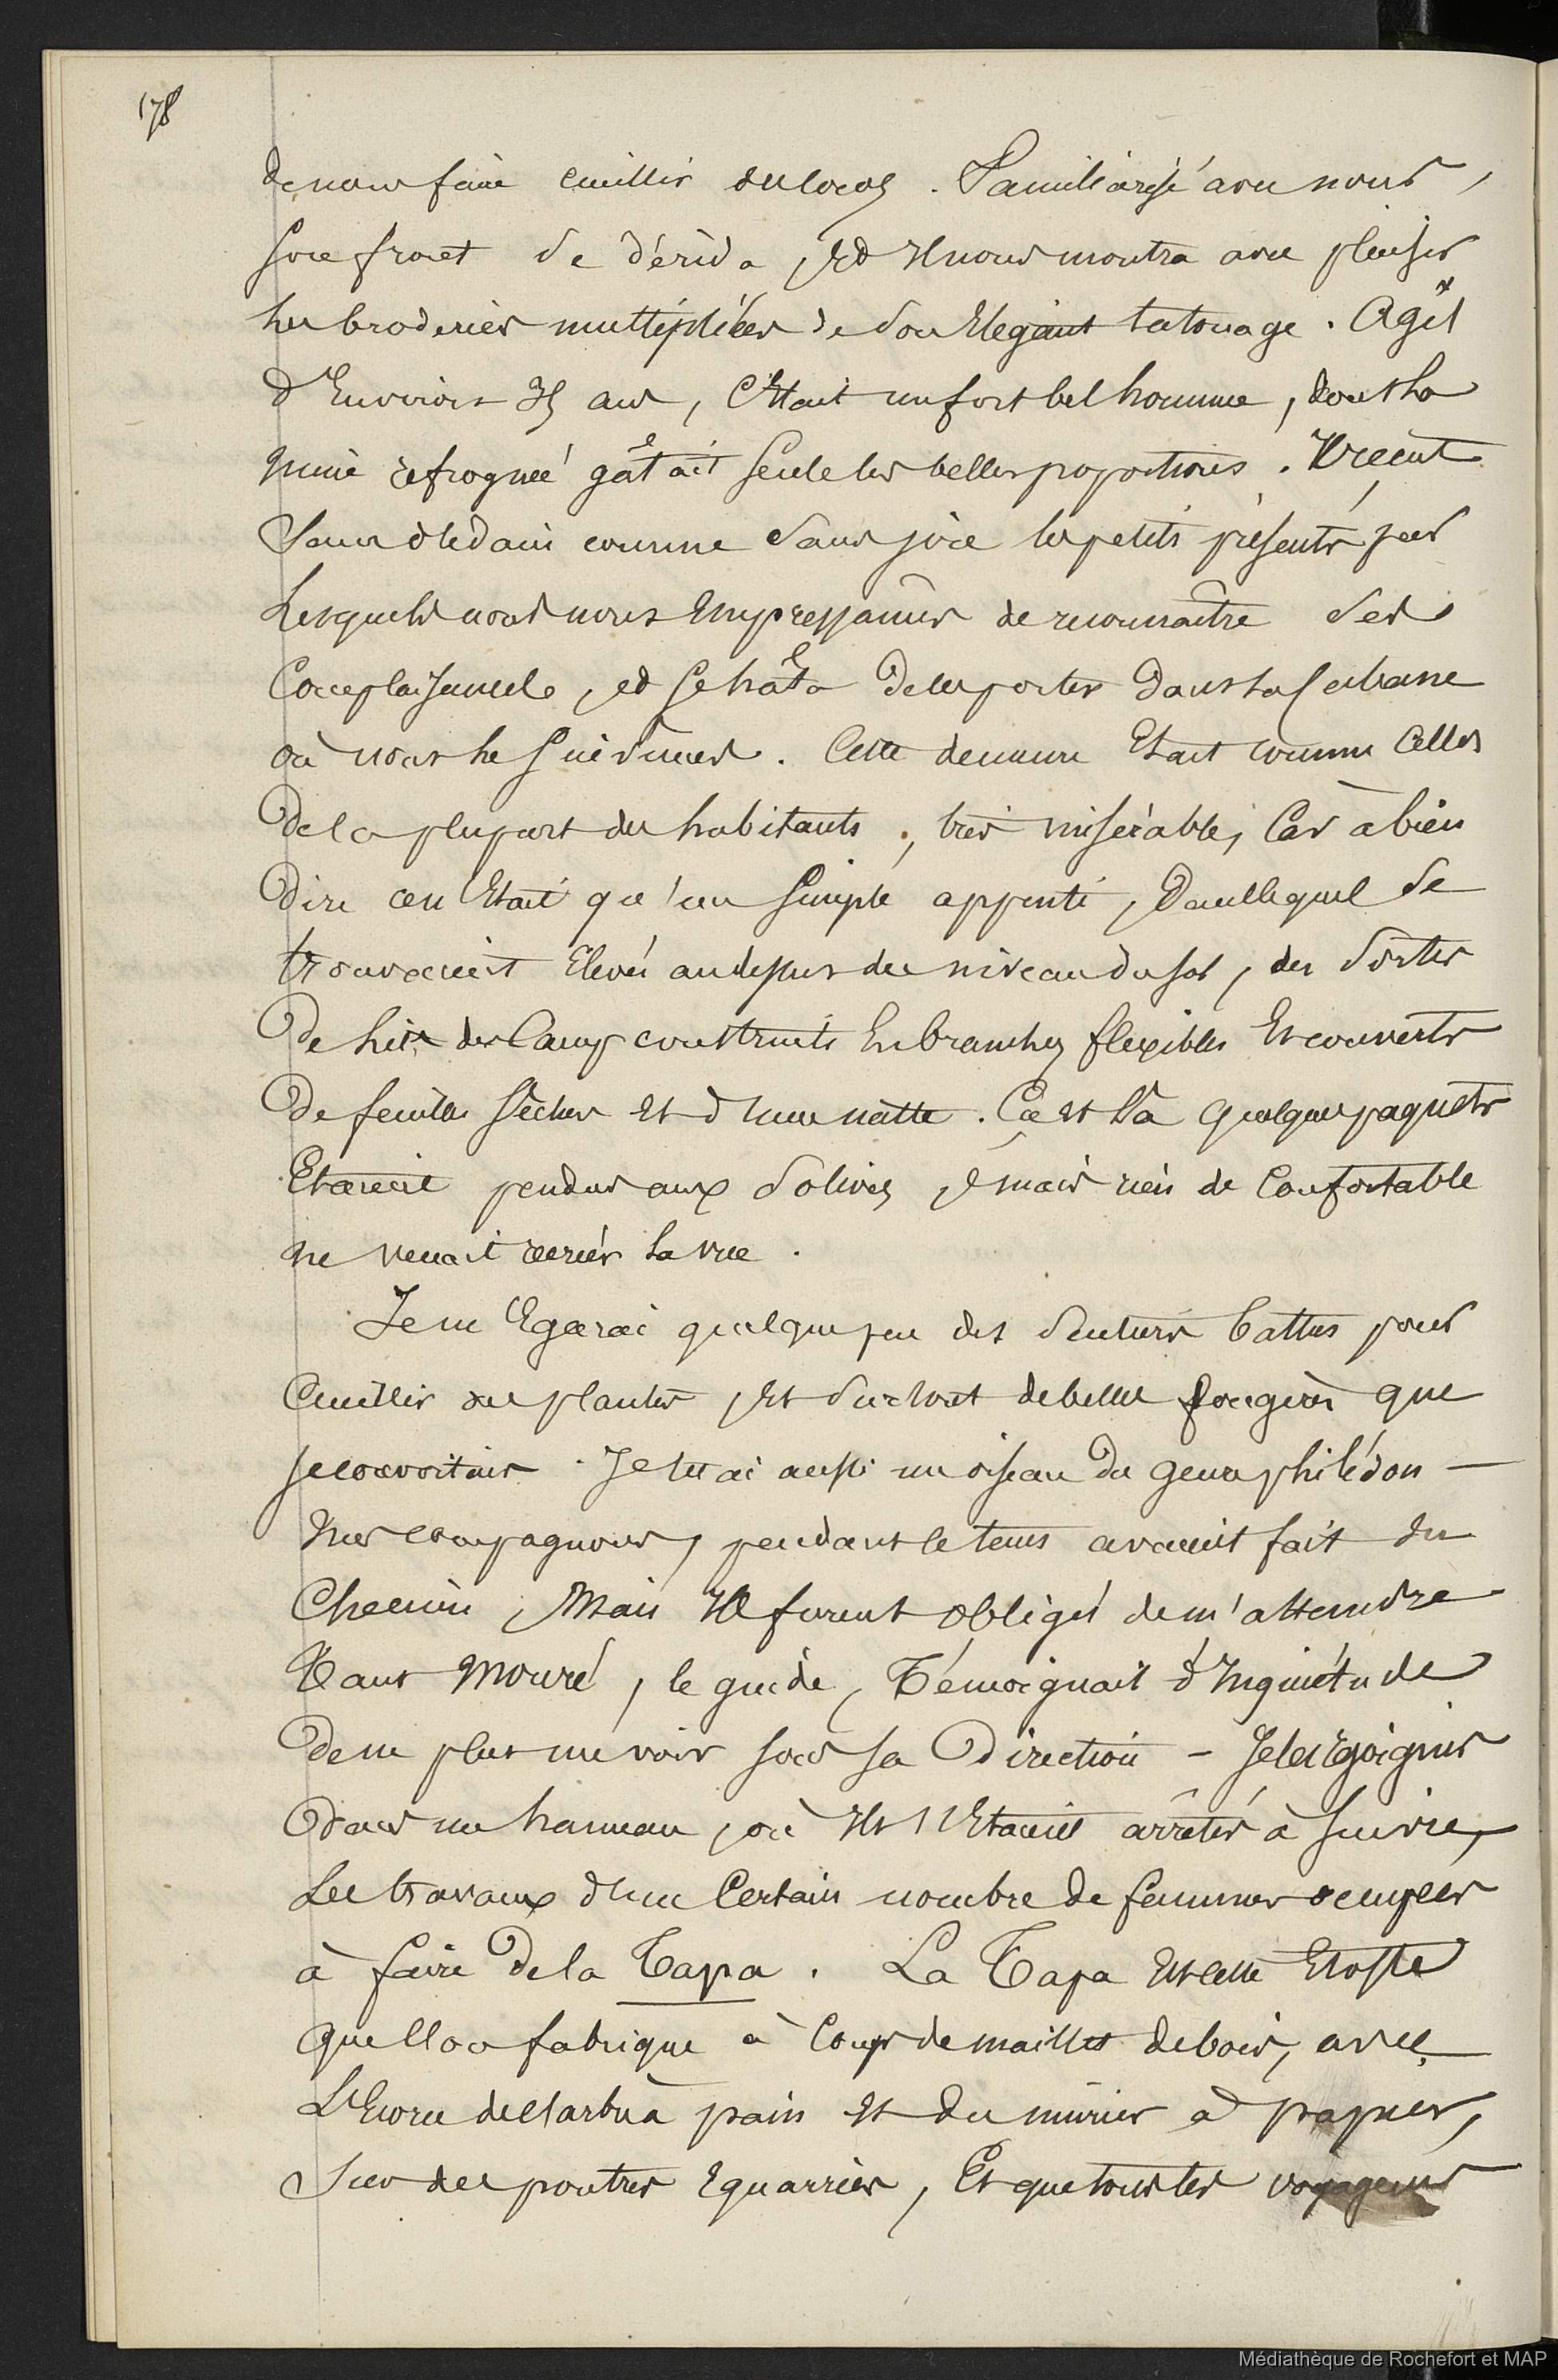 178
de nous faire cueillir des cocos. Familiarisé avec nous,
son front se dérida, et il nous montra avec plaisir
les broderies multipliées de son élégant tatouage. Agé
d'environ 35 ans, c'était un fort bel homme, dont la
mine refrognée gâtait seule les belles proportions. Il reçut
sans dédain comme sans joie les petits présents par
lesquels nous nous empressâmes de reconnaître ses
complaisances, et se hâta de les porter dans sa cabane
où nous le suivîmes. Cette demeure était comme celles
de la plupart des habitants, très misérable, car à bien
dire ce n'était qu'un simple appenti, dans lequel se
trouvaient élevés au dessus du niveau du sol, des sortes
de lits de camp construits en branches flexibles et couverts
de feuilles sèches et d'une natte. Ça et là quelques paquets
étaient pendus aux solives, mais rien de confortable
ne venait récréer la vue.
Je m'égarai quelque peu des sentiers battus pour
cueillir des plantes, et surtout de belles fougères que
je convoitais. Je tuai aussi un oiseau du genre philédon —
mes compagnons, pendant ce tems avaient fait du
chemin, mais ils furent obligés de m'attendre
tant Mouré, le guide, témoignait d'inquiétude
de ne plus me voir sous sa direction - je les rejoignis
dans un hameau, où ils s'étaient arrêtés à suivre,
les travaux d'un certain nombre de femmes occupées
à faire de la Tapa. La Tapa est cette étoffe
que l'on fabrique à coups de maillets de bois, avec
l'écorce de l'arbre à pain et du mûrier à papier,
sur des poutres équarries, et que tous les voyageurs
Médiathèque de Rochefort et MAP